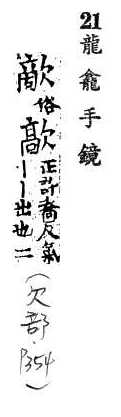 21 龍龕手鏡
歒俗歊正許喬反氣丨丨出也二(欠部,P354)